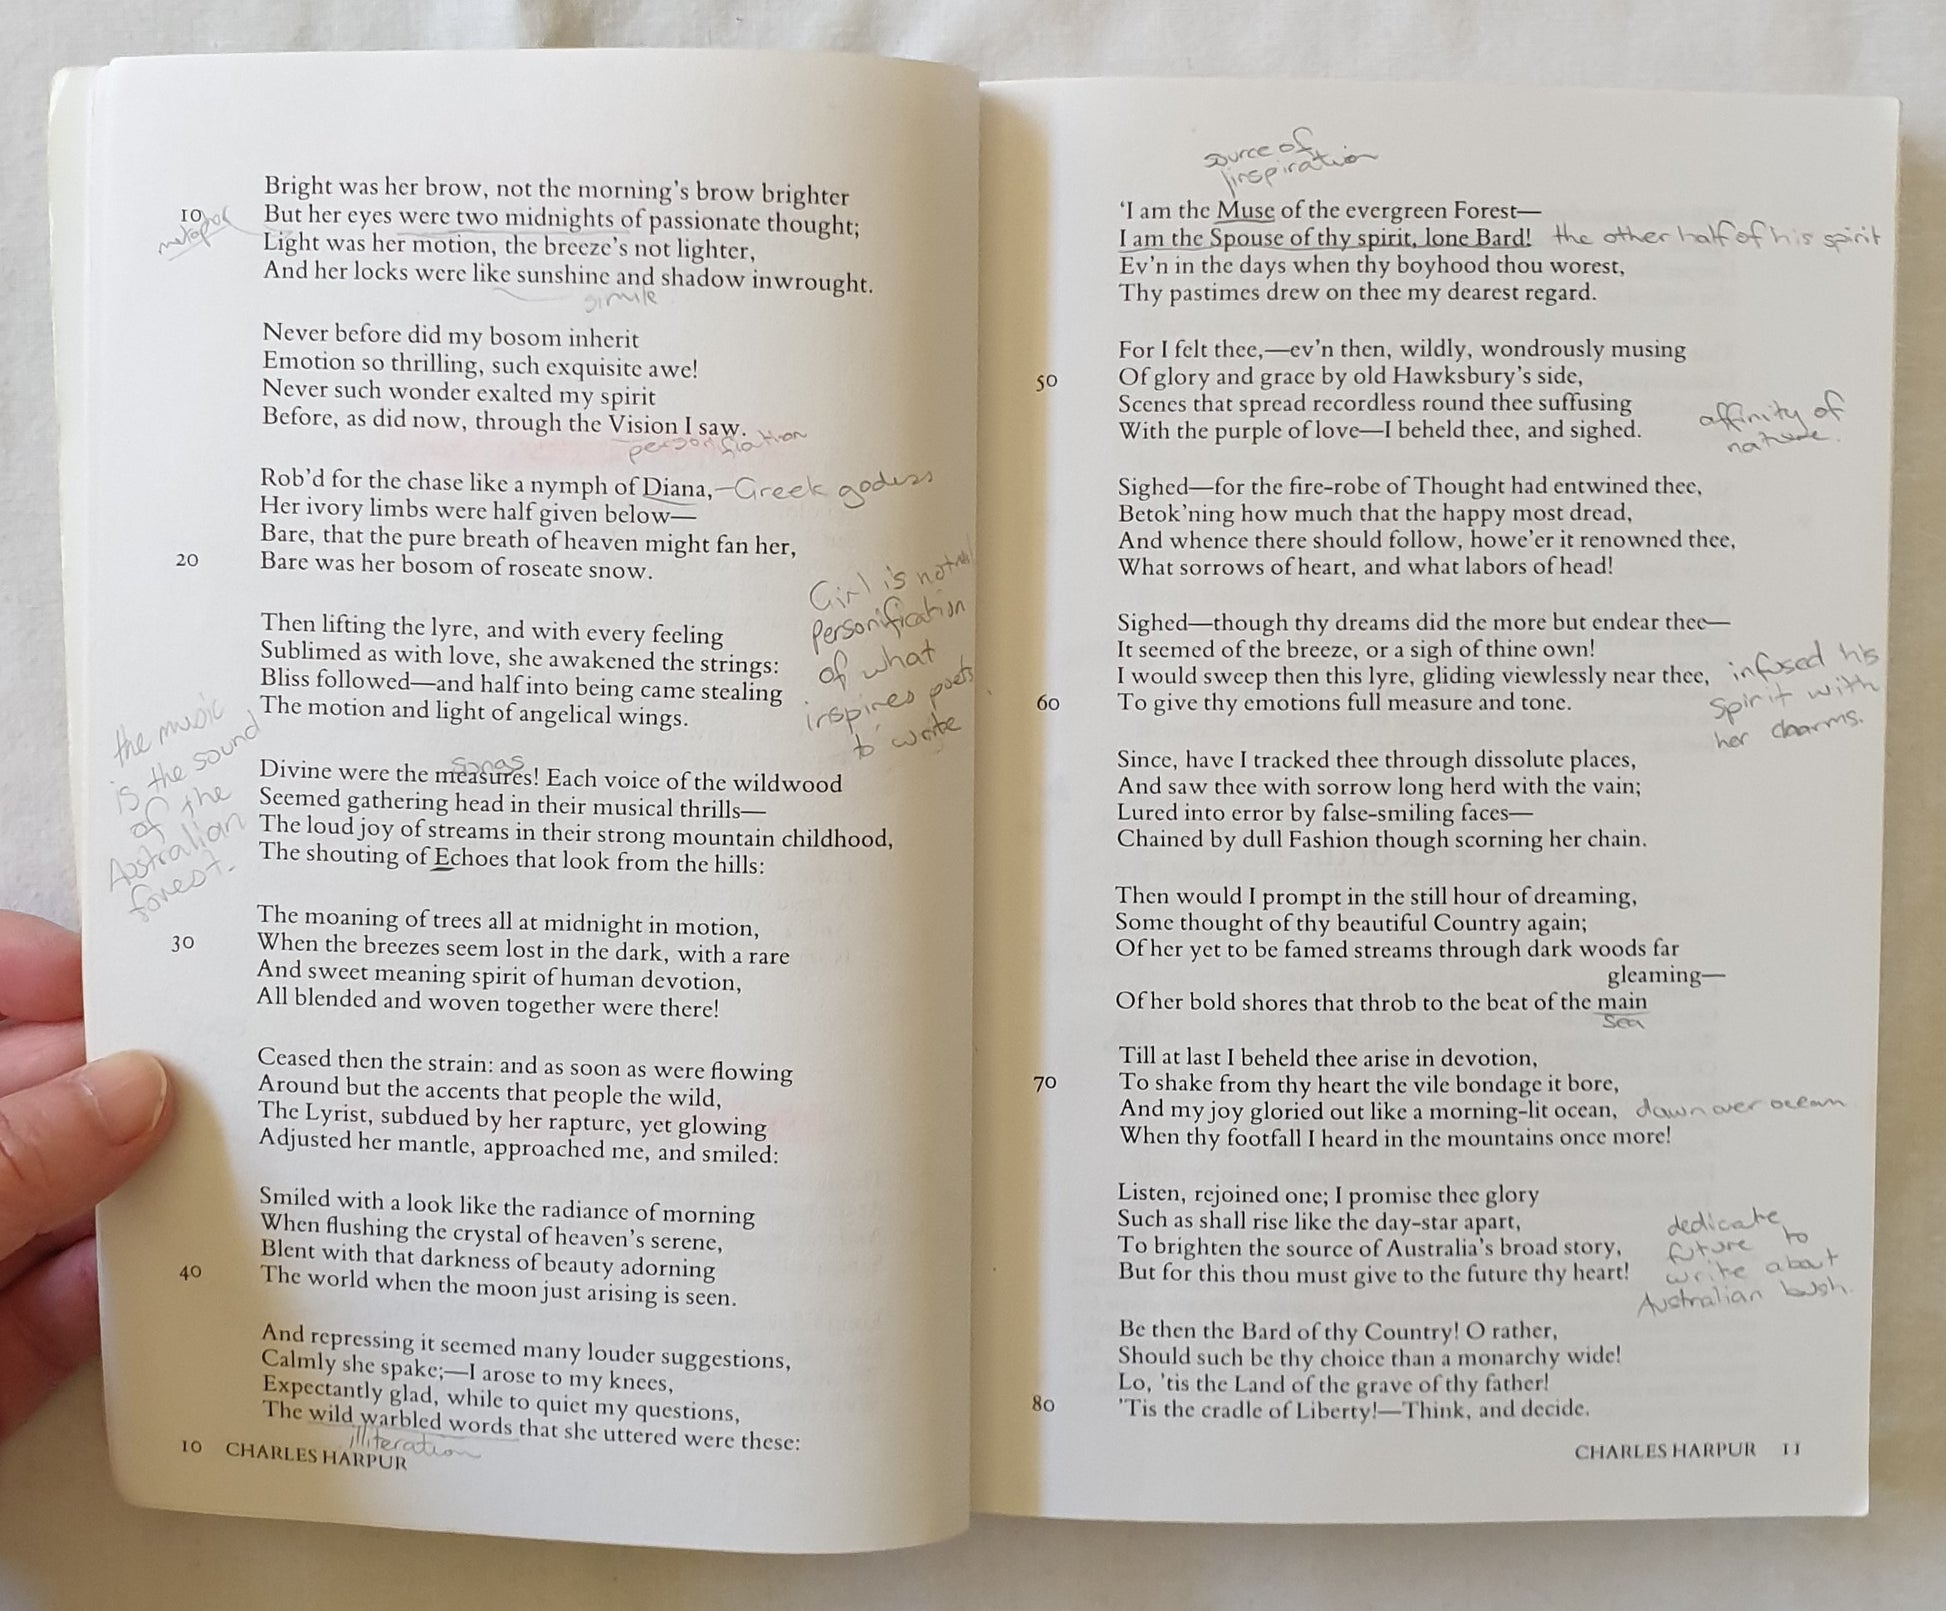 Bright was her brow, not the morning's brow brighter
10 But her eyes were two midnights of passionate thought;
metaphor
Light was her motion, the breeze's not lighter,
And her locks were like sunshine and shadow inwrought.
simile
Never before did my bosom inherit
Emotion so thrilling, such exquisite awe!
Never such wonder exalted my spirit
Before, as did now, through the Vision I saw.
personifiation
Rob'd for the chase like a nymph of Diana, – Greek godess
Her ivory limbs were half given below—
Bare, that the pure breath of heaven might fan her,
20 Bare was her bosom of roseate snow.
Girl is not real
personification
of what
inspires poets
to write
Then lifting the lyre, and with every feeling
Sublimed as with love, she awakened the strings:
Bliss followed—and half into being came stealing
The motion and light of angelical wings.
the music
is the sound
of the
Australian
forest.
songs
Divine were the measures! Each voice of the wildwood
Seemed gathering head in their musical thrills—
The loud joy of streams in their strong mountain childhood,
The shouting of Echoes that look from the hills:
The moaning of trees all at midnight in motion,
30 When the breezes seem lost in the dark, with a rare
And sweet meaning spirit of human devotion,
All blended and woven together were there!
Ceased then the strain: and as soon as were flowing
Around but the accents that people the wild,
The Lyrist, subdued by her rapture, yet glowing
Adjusted her mantle, approached me, and smiled:
Smiled with a look like the radiance of morning
When flushing the crystal of heaven's serene,
Blent with that darkness of beauty adorning
40 The world when the moon just arising is seen.
And repressing it seemed many louder suggestions,
Calmly she spake;—I arose to my knees,
Expectantly glad, while to quiet my questions,
The wild warbled words that she uttered were these:
illiteration
10 CHARLES HARPUR
source of
inspiration
'I am the Muse of the evergreen Forest—
I am the Spouse of thy spirit, lone Bard! the other half of his spirit
Ev'n in the days when thy boyhood thou worest,
Thy pastimes drew on thee my dearest regard.
For I felt thee,—ev'n then, wildly, wondrously musing
50 Of glory and grace by old Hawksbury's side,
Scenes that spread recordless round thee suffusing
With the purple of love—I beheld thee, and sighed.
affinity of
nature.
Sighed—for the fire-robe of Thought had entwined thee,
Betok'ning how much that the happy most dread,
And whence there should follow, howe'er it renowned thee,
What sorrows of heart, and what labors of head!
Sighed—though thy dreams did the more but endear thee—
It seemed of the breeze, or a sigh of thine own!
I would sweep then this lyre, gliding viewlessly near thee,
60 To give thy emotions full measure and tone.
infused his
spirit with
her charms.
Since, have I tracked thee through dissolute places,
And saw thee with sorrow long herd with the vain;
Lured into error by false-smiling faces—
Chained by dull Fashion though scorning her chain.
Then would I prompt in the still hour of dreaming,
Some thought of thy beautiful Country again;
Of her yet to be famed streams through dark woods far
gleaming—
Of her bold shores that throb to the beat of the main
sea
Till at last I beheld thee arise in devotion,
70 To shake from thy heart the vile bondage it bore,
And my joy gloried out like a morning-lit ocean, dawn over ocean
When thy footfall I heard in the mountains once more!
Listen, rejoined one; I promise thee glory
Such as shall rise like the day-star apart,
To brighten the source of Australia's broad story,
But for this thou must give to the future thy heart!
dedicate
future to
write about
Australian bush.
Be then the Bard of thy Country! O rather,
Should such be thy choice than a monarchy wide!
Lo, 'tis the Land of the grave of thy father!
80 'Tis the cradle of Liberty!—Think, and decide.
CHARLES HARPUR 11